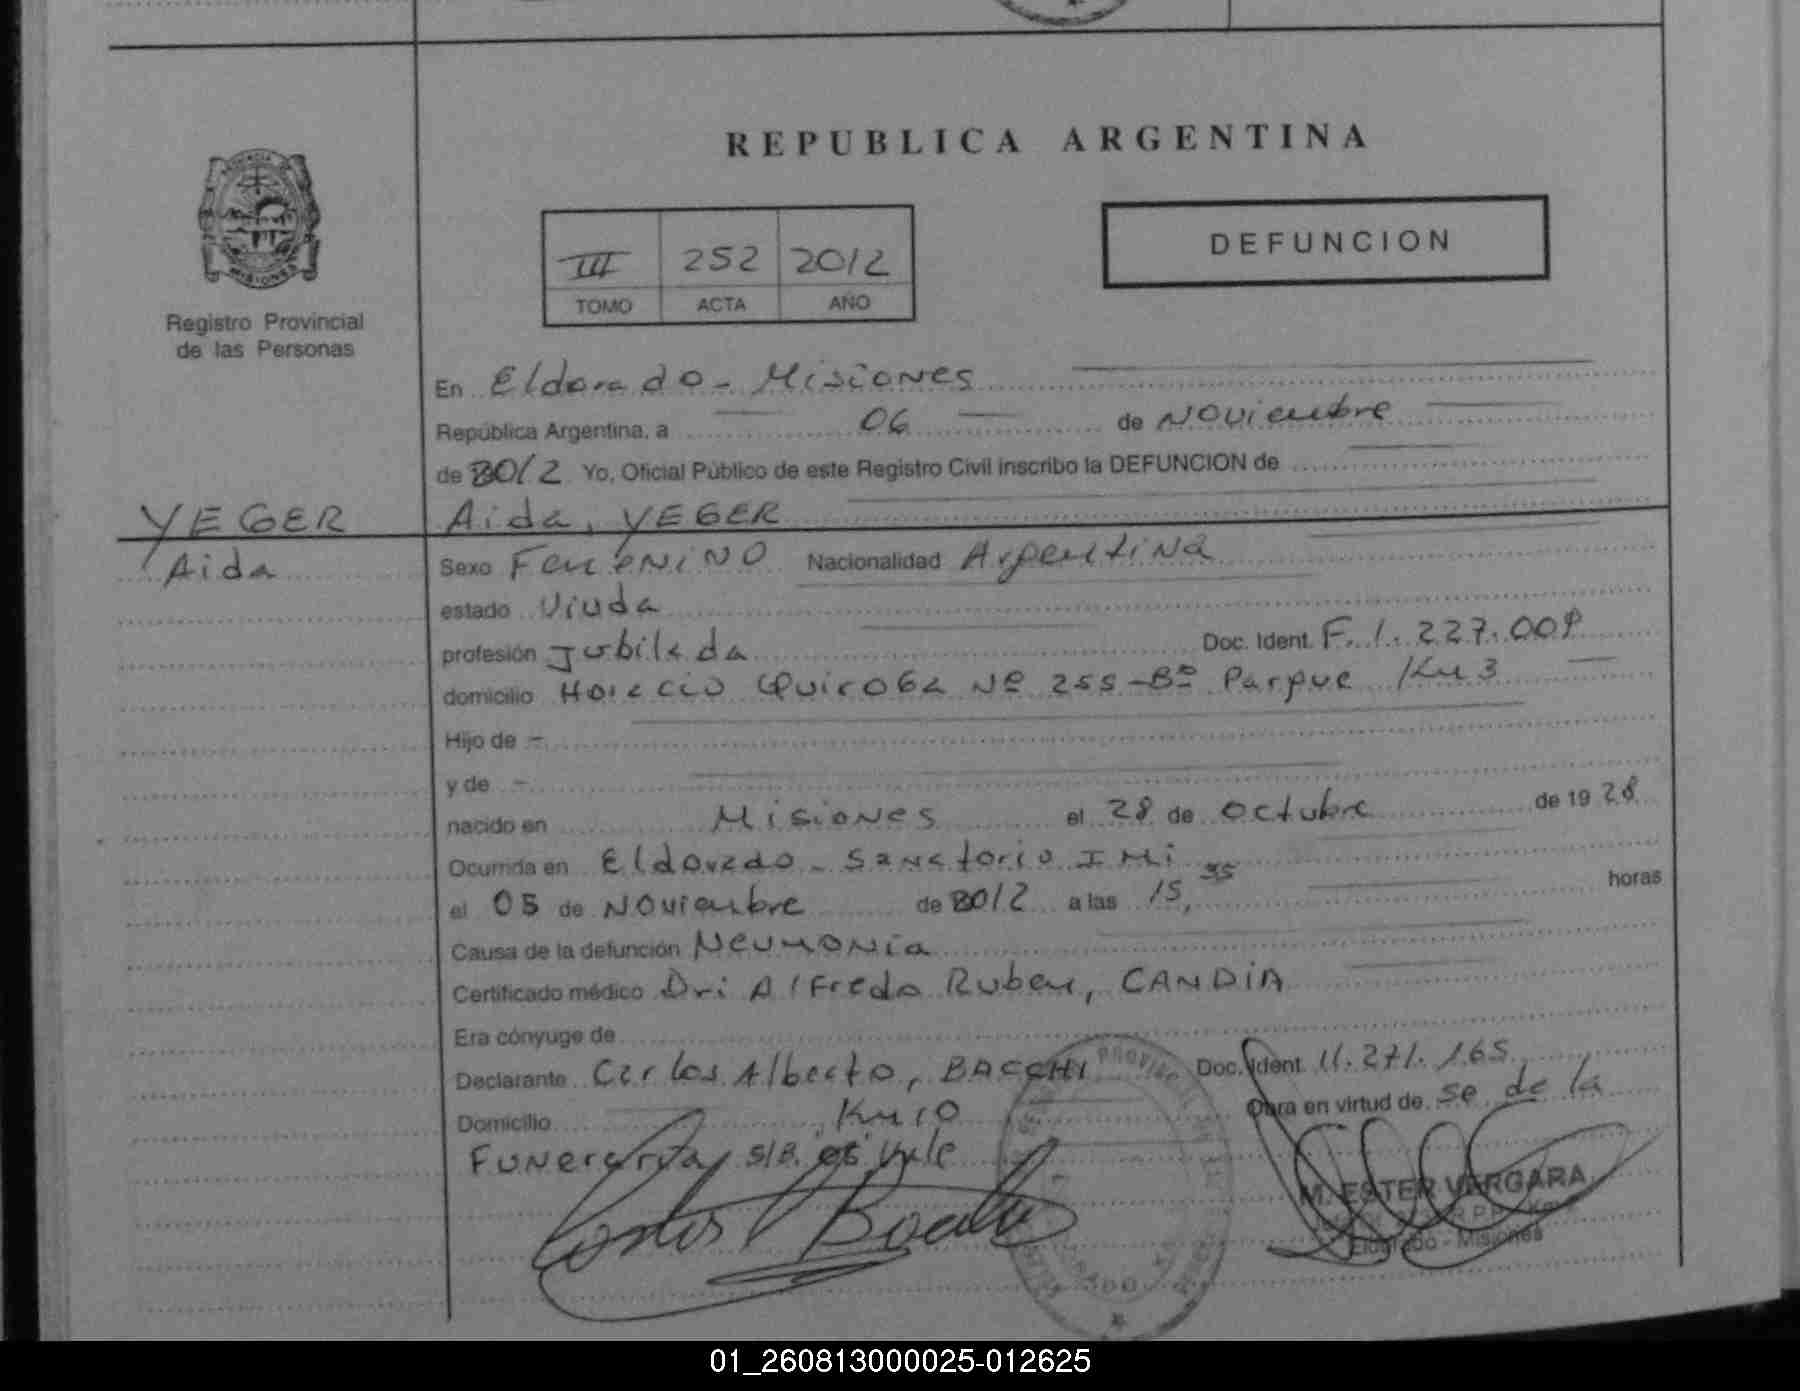 REPUBLICA ARGENTINA
DEFUNCION
III 252 2012
TOMO ACTA AÑO
MISIONES
Registro Provincial
de las Personas
En Eldorado - Misiones
República Argentina, a 06 de Noviembre
de 2012 Yo, Oficial Público de este Registro Civil inscribo la DEFUNCION de
YEGER
Aida
Aida, YEGER
Sexo Femenino Nacionalidad Argentina
estado Viuda
profesión Jubilada Doc. Ident. F. 1. 227.009
domicilio Horacio Quiroga Nº 255 - Bº Parque Km 3
Hijo de -
y de -
nacido en Misiones el 28 de octubre de 19 28
Ocurrida en Eldorado - Sanatorio IMi
el 05 de Noviembre de 2012 a las 15,35 horas
Causa de la defunción Neumonia
Certificado médico Dr: Alfredo Ruben, CANDIA
Era cónyuge de
Declarante Carlos Alberto, BACCHI Doc. Ident. 11.271.165
Domicilio Km 10 Obra en virtud de se de la
Funeraria S/R. es vale
M. ESTER VERGARA
Eldorado - Misiones
01_260813000025-012625